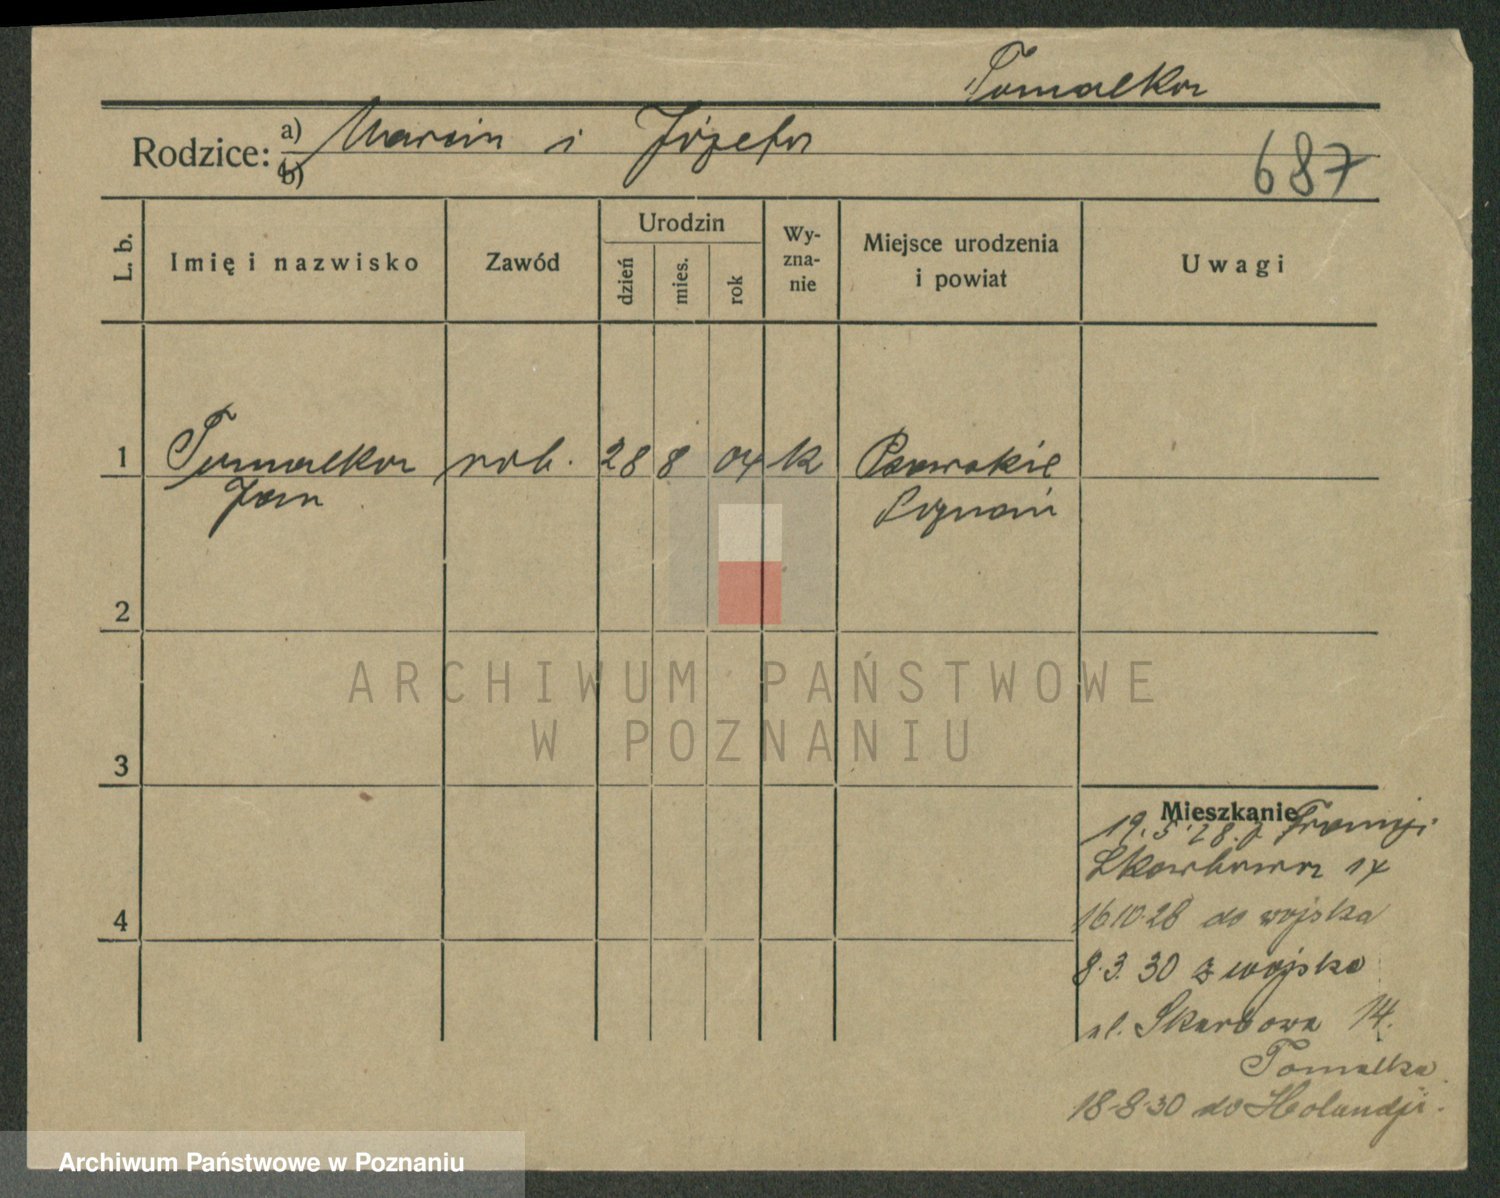 Tomalka
Rodzice: a) Marcin i Józefa
b)
687
L. b.
Imię i nazwisko
Zawód
Urodzin
dzień
mies.
rok
Wy-
zna-
nie
Miejsce urodzenia
i powiat
Uwagi
1 Tomalka rob. 28 8 04 k
Jan Poznań
2
3
4
Mieszkanie
19.5.28. z Francji
Skarbowa 14
16 10 28 do wojska
8.3.30 z wojska
ul. Skarbowa 14.
Tomalka
18-8-30 do Holandji.
ARCHIWUM PAŃSTWOWE
W POZNANIU
Archiwum Państwowe w Poznaniu